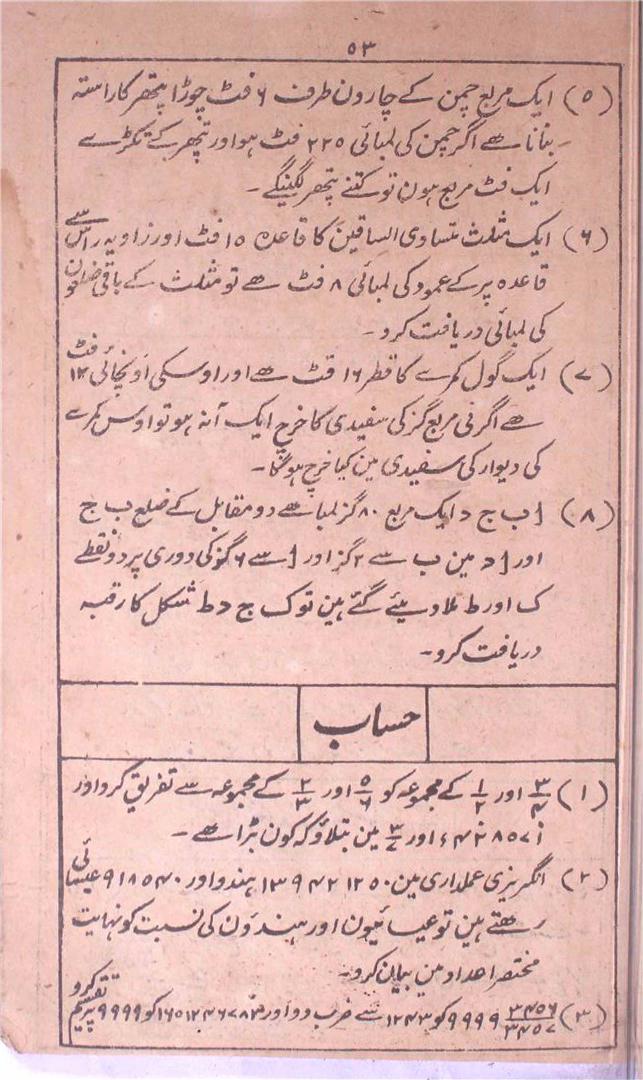 ۵۳
(۵) ایک مربع چمن کے چارون طرف ۶ فٹ چوڑا پتھر کا راستہ
بنانا ھے اگر چمن کی لمبائی ۲۲۵ فٹ ہو اور پتھر کے ٹکڑے
ایک فٹ مربع ہون تو کتنے پتھر لگینگے۔
(۶) ایک مثلث متساوی الساقین کا قاعدہ ۱۵ فٹ اور زاویہ راس سے
قاعدہ پر کے عمود کی لمبائی ۸ فٹ ھے تو مثلث کے باقی ضلعون
کی لمبائی دریافت کرو۔
(۷) ایک گول کمرے کا قطر ۱۶ فٹ ھے اور اوسکی اونچائی ۱۲ فٹ
ھے اگر فی مربع گز کی سفیدی کا خرچ ایک آنہ ہو تو اوس کمرے
کی دیوار کی سفیدی مین کیا خرچ ہوگا۔
(۸) ا ب ج د ایک مربع ۸۰ گز لمبا ھے دو مقابل کے ضلع ب ج
اور ا د مین ب سے ۲ گز اور ا سے ۶ گز کی دوری پر دو نقطے
ک اور ط ملا دیئے گئے ہین تو ک ج د ط شکل کا رقبہ
دریافت کرو۔
حساب
(۱) ۳/۴ اور ۱/۲ کے مجموعہ کو ۵/۶ اور ۲/۳ کے مجموعہ سے تفریق کرو اور
اور ۳/۷ مین بتلاؤ کہ کون بڑا ھے۔
(۲) انگریزی عملداری مین ۱۳۹۴۲۱۲۵۰ ہندو اور ۹۱۸۵۴۰ عیسائی
رھتے ہین تو عیسائیون اور ہندوَن کی نسبت کو نہایت
مختصر اعداد مین بیان کرو۔
(۳) ۹۹۹۹ ۳۴۵۶/۳۴۵۷ کو ۱۲۴۳ سے ضرب دو اور کو ۹۹۹۹ پر تقسیم کرو